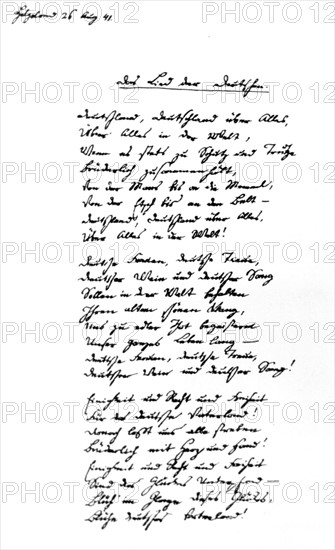 Helgoland 26 Aug 41.
Das Lied der Deutschen.
Deutschland, Deutschland über Alles,
Über Alles in der Welt,
Wenn es stets zu Schutz und Trutze
Brüderlich zusammenhält,
Von der Maas bis an die Memel,
Von der Etsch bis an den Belt –
Deutschland, Deutschland über Alles,
Über Alles in der Welt!
Deutsche Frauen, deutsche Treue,
Deutscher Wein und deutscher Sang
Sollen in der Welt behalten
Ihren alten schönen Klang,
Uns zu edler That begeistern
Unser ganzes Leben lang –
Deutsche Frauen, deutsche Treue,
Deutscher Wein und deutscher Sang!
Einigkeit und Recht und Freiheit
Für das deutsche Vaterland!
Danach laßt uns alle streben
Brüderlich mit Herz und Hand!
Einigkeit und Recht und Freiheit
Sind des Glückes Unterpfand –
Blüh im Glanze dieses Glückes,
Blühe deutsches Vaterland!
PHOTO12